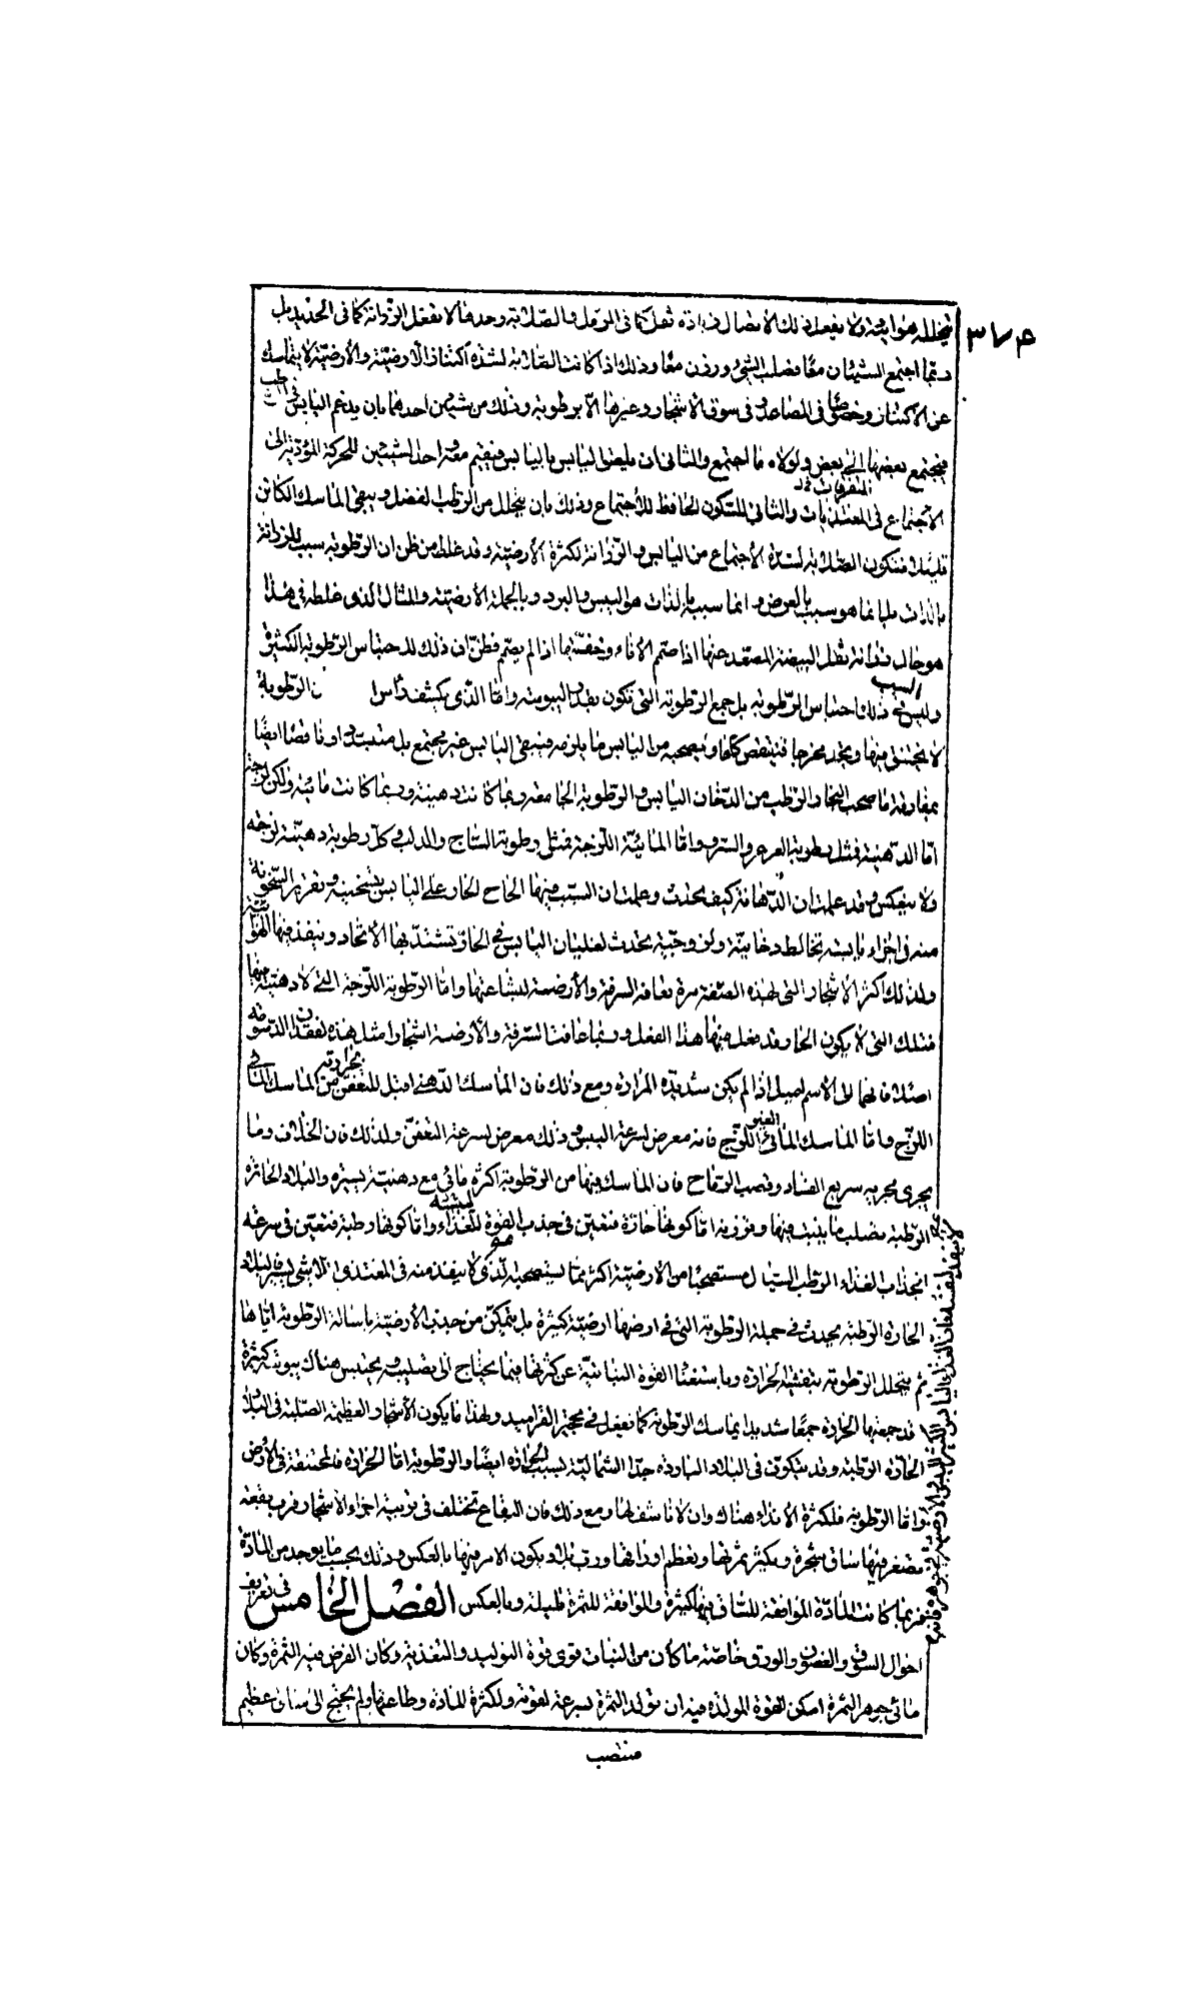 ٣٧٤
يتخلله هوائية ولا يفعل ذلك الانفصال زيادة ثقل كما فى الرمل والصلابة وحدها لا تفعل الرزانة كما فى الحديد بل
ربما اجتمع الشيئان معا فصلب الشئ ورزن معا وذلك اذا كانت الصلابة لشدة اكتناز الارضية والارضية لا يتماسك
عن الاكتناز وخصوصا فى المصاعد فى سوق الاشجار وغيرها الا برطوبة وذلك من شيئين احدهما بان يدغم اليابس فى الرطب
فيجتمع بعضها الى بعض ولولاه ما اجتمع والثانى ان يلصق اليابس باليابس فيقيم معه احد الشيئين للحركة المؤدية الى
المتفرقات
الاجتماع فى المغتذيات والثانى للتكون الحافظ للاجتماع وذلك بان يتحلل من الرطب الفضل ويبقى الماسك الكائن
قليلا فتكون الصلابة لشدة الاجتماع من اليابس والرزانة لكثرة الارضية وقد غلط من ظن ان الرطوبة سبب للرزانة
بالذات بل انما هو سبب بالعرض وانما سببه بالذات هو اليبس والبرد وبالجملة الارضية والمثال الذى غلطه فى هذا
هو حال رزانة ثقل البيضة المصعد عنها اذا صمم الاناء وخفتها اذا لم يصمم فظن ان ذلك لاحتباس الرطوبة الكثيرة
السبب
وليس فى ذلك احتباس الرطوبة بل جمع الرطوبة التى تكون بقدر اليبوسة واما الذى يكشف راس ن الرطوبة
لا يختنق فيها ويجد مخرجا فينقص كلها ويصحبه من اليابس ما يلزمه فيبقى اليابس غير مجتمع بل متبددا وناقصا ايضا
بمفارقة ما صحب البخار الرطب من الدخان اليابس والرطوبة الجامعة ربما كانت دهنية وربما كانت مائية ولكن لزجة
اما الدهنية فمثل رطوبة العرعر والسرو واما المائية اللزجة فمثل رطوبة الساج والدلب وكل رطوبة دهنية لزجة
ولا ينعكس وقد علمت ان الدهانة كيف يحدث وعلمت ان السبب فيها الحاح الحار على اليابس بتسخينه وتغرير السخونة
منه فى اجزاء يابسة تخالط دخانية ولزوجية يحدث لغليان اليابس فى الحار تشتد بها الاتحاد وينفذ فيها الهوائية
ولذلك اكثر الاشجار التى لهذه الصفة مرة تعافه السرفة والارضة لبشاعتها واما الرطوبة اللزجة التى لا دهنية فيها
فتلك التى لا يكون الحار قد فعل فيها هذا الفعل وربما عافت السرفة والارضة اشجارا مثل هذه لفقدان الدسومة
اصلا فانها الى الاسم اميل اذا لم يكن شديدة المرارة ومع ذلك فان الماسك الدهنى اقبل للتعفن بحرارته من الماسك المائى
اللزج واما الماسك المائى الغير اللزج فانه معرض لسرعة اليبس وذلك معرض لسرعة التعفن ولذلك فان الخلاف وما
يجرى مجريه سريع الفساد وقصب الرماح فان الماسك فيها من الرطوبة اكثره مائى مع دهنية يسيرة والبلاد الحارة
الرطبة يصلب ما ينبت فيها ويرزنه اما كونها حارة فتعين فى جذب القوة للغذاء واما كونها رطبة فتعين فى سرعة
انجذاب الغذاء الرطب السيال مستصحبا من الارضية اكثر مما يستصحبه الذى لا ينفذ منه فى المغتذى الا شئ يسير البلاد
الحارة الرطبة يحدث فى جملة الرطوبة التى فى ارضها ارضية كثيرة بل يتمكن من جذب الارضية باسالة الرطوبة اياها
ثم يتحلل الرطوبة بتفشية الحرارة وباستغناء القوة النباتية عن كثرتها فيما يحتاج الى تصليب ويحتبس هناك يبوسة كثيرة
قد جمعتها الحرارة جمعا شديدا بماسك الرطوبة كما تفعل فى تحجير القراميد ولهذا ما يكون الاشجار العظيمة الصلبة فى البلاد
الحارة الرطبة وقد يتكون فى البلاد الباردة جدا الشمالية بسبب الحرارة ايضا والرطوبة اما الحرارة فالمختنقة فى الارض
واما الرطوبة فلكثرة الانداء هناك وان لا ناشف لها ومع ذلك فان البقاع تختلف فى تربية اجزاء الاشجار فرب بقعة
يصغر فيها ساق شجرة ويكثر ثمرتها ويعظم اوراقها ورب بلاد يكون الامر فيها بالعكس وذلك بحسب ما يوجد من المادة
فربما كانت المادة الموافقة للساق فيها كثيرة والموافقة للثمرة قليلة وبالعكس الفصل الخامس فى تعريف
احوال السوق والغصون والورق خاصة ما كان من النبات قوى قوة التوليد والتغذية وكان الغرض فيه الثمرة وكان
مائى جوهر الثمرة امكن للقوة المولدة فيه ان تولد الثمرة بسرعة لقوته ولكثرة المادة وطاعتها ولم يحتج الى ساق عظيم
منتصب